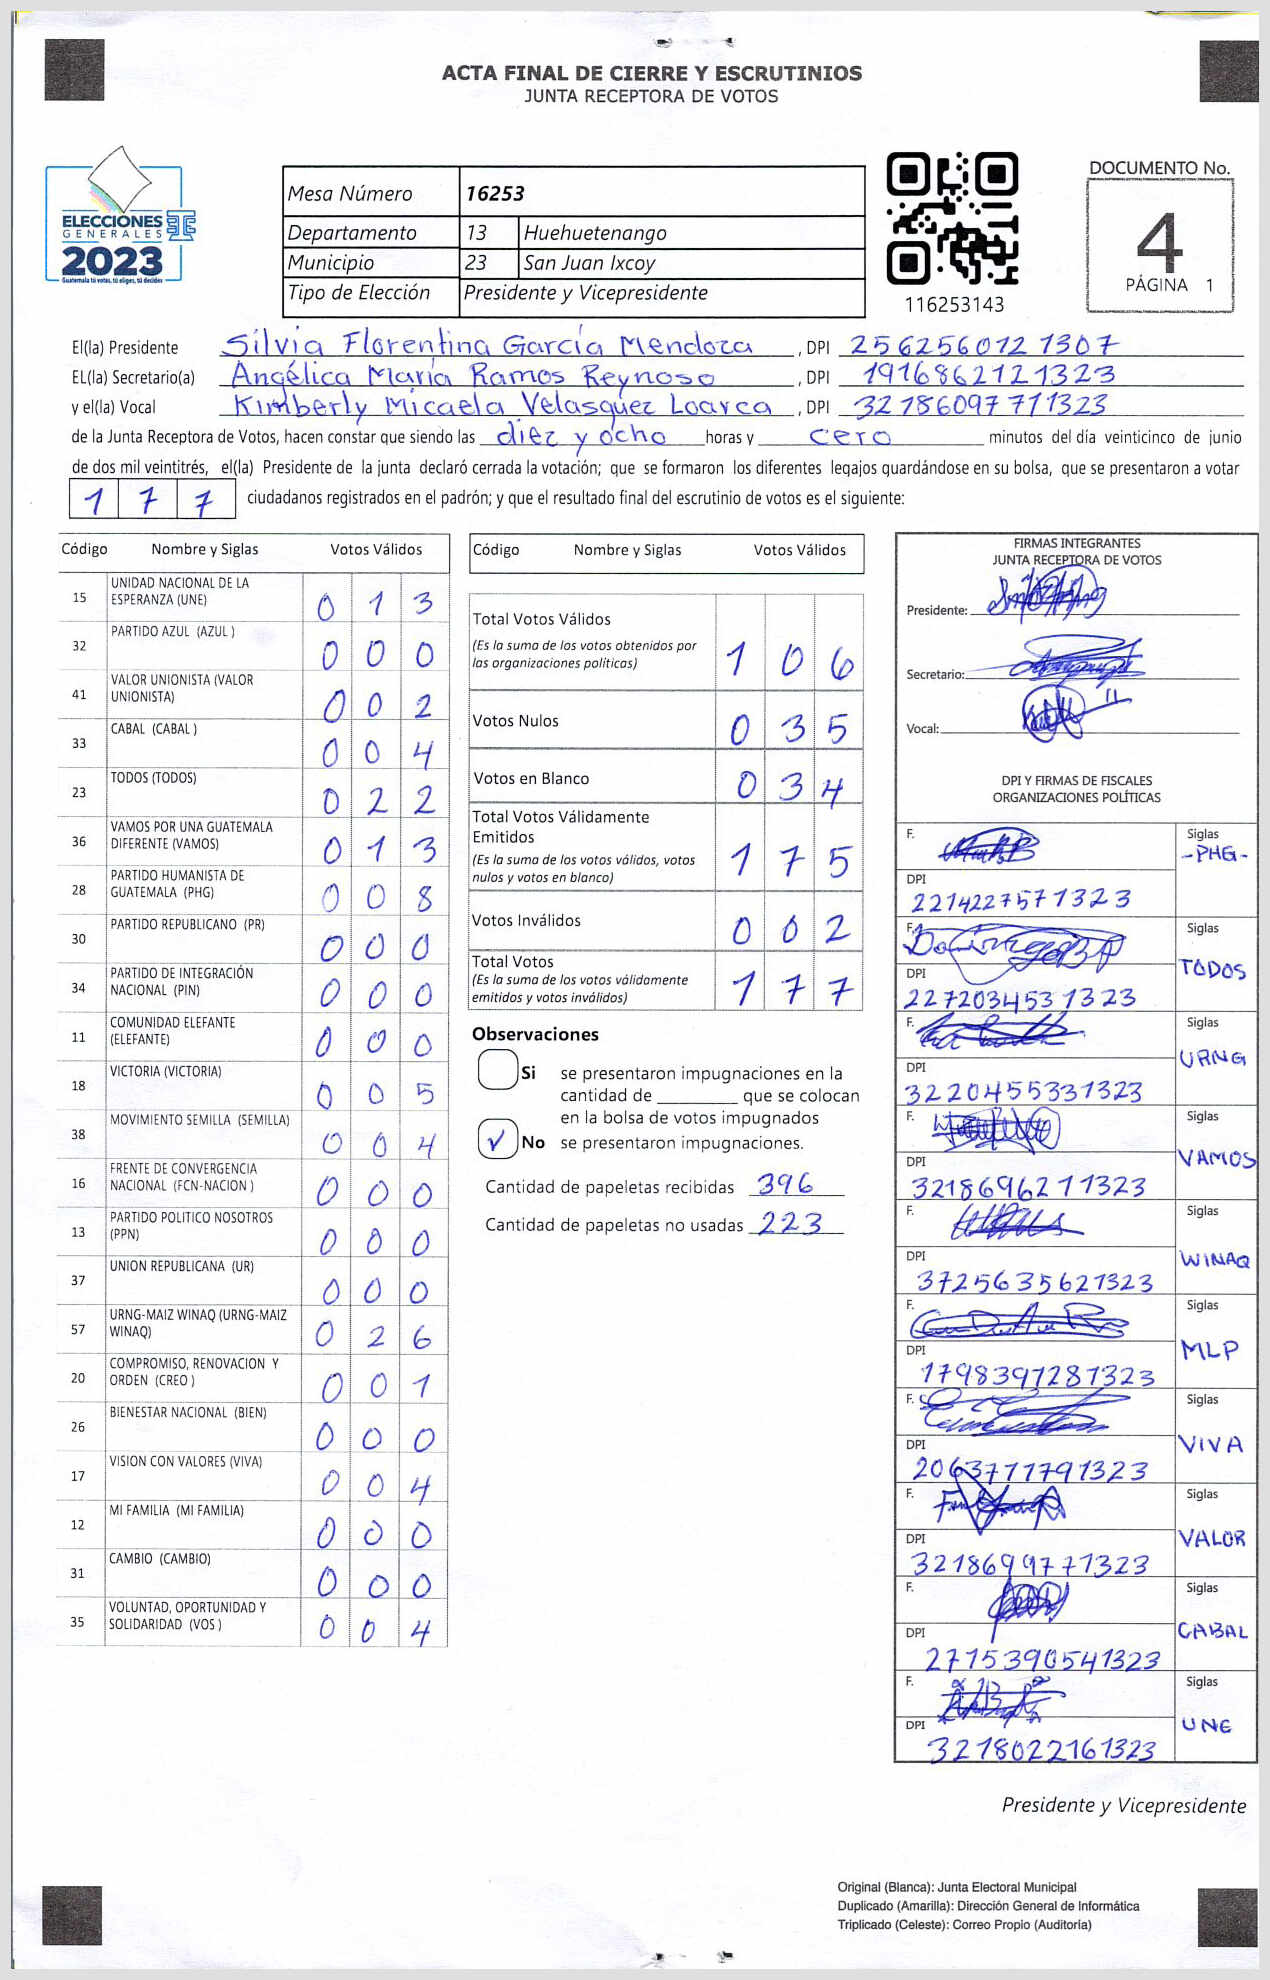 ACTA FINAL DE CIERRE Y ESCRUTINIOS
JUNTA RECEPTORA DE VOTOS
ELECCIONES
GENERALES
2023
Guatemala tú votas, tú eliges, tú decides
Mesa Número 16253
Departamento 13 Huehuetenango
Municipio 23 San Juan Ixcoy
Tipo de Elección Presidente y Vicepresidente
116253143
DOCUMENTO No.
4
PÁGINA 1
El(la) Presidente Silvia Florentina García Mendoza, DPI 2562560121307
EL(la) Secretario(a) Angélica María Ramos Reynoso, DPI 1916862121323
y el(la) Vocal Kimberly Micaela Velasquez Loarca, DPI 32186097711323
de la Junta Receptora de Votos, hacen constar que siendo las diez y ocho horas y cero minutos del día veinticinco de junio
de dos mil veintitrés, el(la) Presidente de la junta declaró cerrada la votación; que se formaron los diferentes legajos guardándose en su bolsa, que se presentaron a votar
177 ciudadanos registrados en el padrón; y que el resultado final del escrutinio de votos es el siguiente:
Código Nombre y Siglas Votos Válidos
15 UNIDAD NACIONAL DE LA ESPERANZA (UNE) 0 1 3
32 PARTIDO AZUL (AZUL ) 0 0 0
41 VALOR UNIONISTA (VALOR UNIONISTA) 0 0 2
33 CABAL (CABAL ) 0 0 4
23 TODOS (TODOS) 0 2 2
36 VAMOS POR UNA GUATEMALA DIFERENTE (VAMOS) 0 1 3
28 PARTIDO HUMANISTA DE GUATEMALA (PHG) 0 0 8
30 PARTIDO REPUBLICANO (PR) 0 0 0
34 PARTIDO DE INTEGRACIÓN NACIONAL (PIN) 0 0 0
11 COMUNIDAD ELEFANTE (ELEFANTE) 0 0 0
18 VICTORIA (VICTORIA) 0 0 5
38 MOVIMIENTO SEMILLA (SEMILLA) 0 0 4
16 FRENTE DE CONVERGENCIA NACIONAL (FCN-NACION ) 0 0 0
13 PARTIDO POLITICO NOSOTROS (PPN) 0 0 0
37 UNION REPUBLICANA (UR) 0 0 0
57 URNG-MAIZ WINAQ (URNG-MAIZ WINAQ) 0 2 6
20 COMPROMISO, RENOVACION Y ORDEN (CREO ) 0 0 1
26 BIENESTAR NACIONAL (BIEN) 0 0 0
17 VISION CON VALORES (VIVA) 0 0 4
12 MI FAMILIA (MI FAMILIA) 0 0 0
31 CAMBIO (CAMBIO) 0 0 0
35 VOLUNTAD, OPORTUNIDAD Y SOLIDARIDAD (VOS ) 0 0 4
Código Nombre y Siglas Votos Válidos
Total Votos Válidos
(Es la suma de los votos obtenidos por las organizaciones políticas) 1 0 6
Votos Nulos 0 3 5
Votos en Blanco 0 3 4
Total Votos Válidamente Emitidos
(Es la suma de los votos válidos, votos nulos y votos en blanco) 1 7 5
Votos Inválidos 0 0 2
Total Votos
(Es la suma de los votos válidamente emitidos y votos inválidos) 1 7 7
Observaciones
Si se presentaron impugnaciones en la
cantidad de ________ que se colocan
en la bolsa de votos impugnados
✓ No se presentaron impugnaciones.
Cantidad de papeletas recibidas 396
Cantidad de papeletas no usadas 223
FIRMAS INTEGRANTES
JUNTA RECEPTORA DE VOTOS
Presidente:
Secretario:
Vocal:
DPI Y FIRMAS DE FISCALES
ORGANIZACIONES POLÍTICAS
F. Siglas -PHG-
DPI 2214227571323
F. Siglas TODOS
DPI 2272034531323
F. Siglas URNG
DPI 3220455331323
F. Siglas VAMOS
DPI 3218696211323
F. Siglas WINAQ
DPI 3725635621323
F. Siglas MLP
DPI 1798397281323
F. Siglas VIVA
DPI 2063771791323
F. Siglas VALOR
DPI 3218699771323
F. Siglas CABAL
DPI 2715390541323
F. Siglas UNE
DPI 3218022161323
Presidente y Vicepresidente
Original (Blanca): Junta Electoral Municipal
Duplicado (Amarilla): Dirección General de Informática
Triplicado (Celeste): Correo Propio (Auditoría)